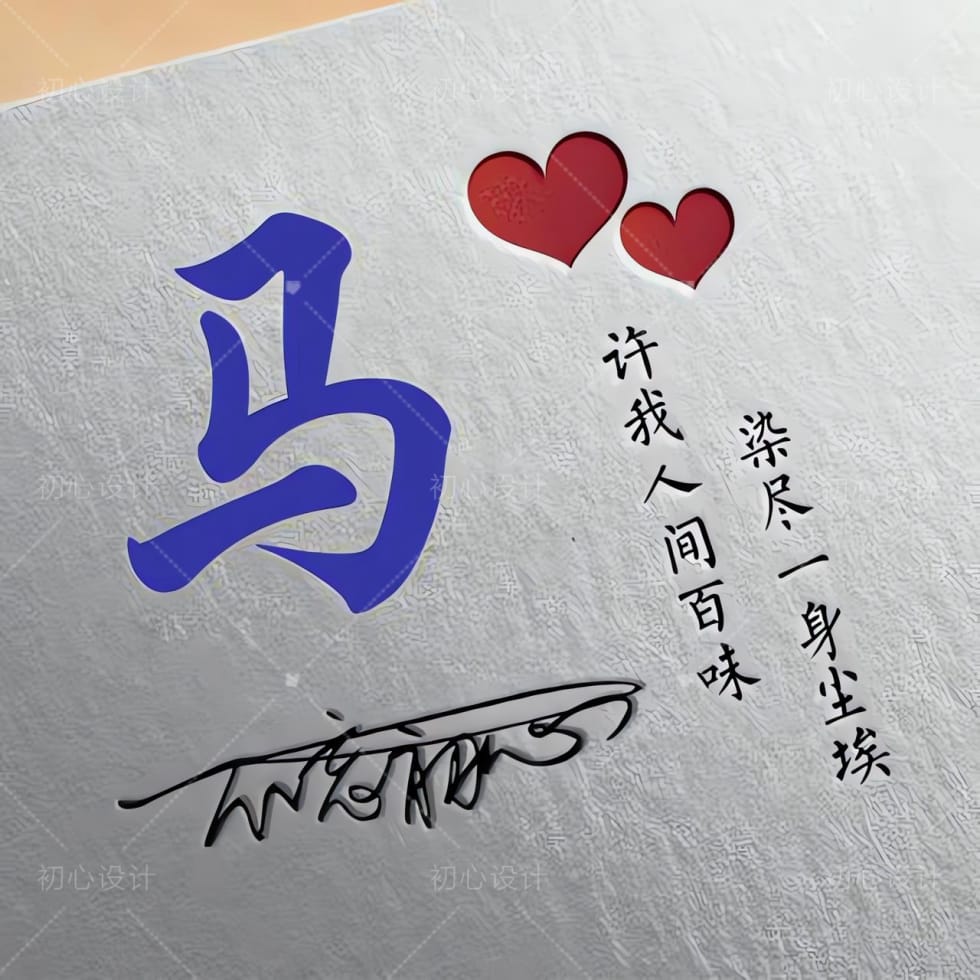 马
许我人间百味
染尽一身尘埃
初心设计
初心设计
初心设计
初心设计
初心设计
初心设计
初心设计
初心设计
初心设计